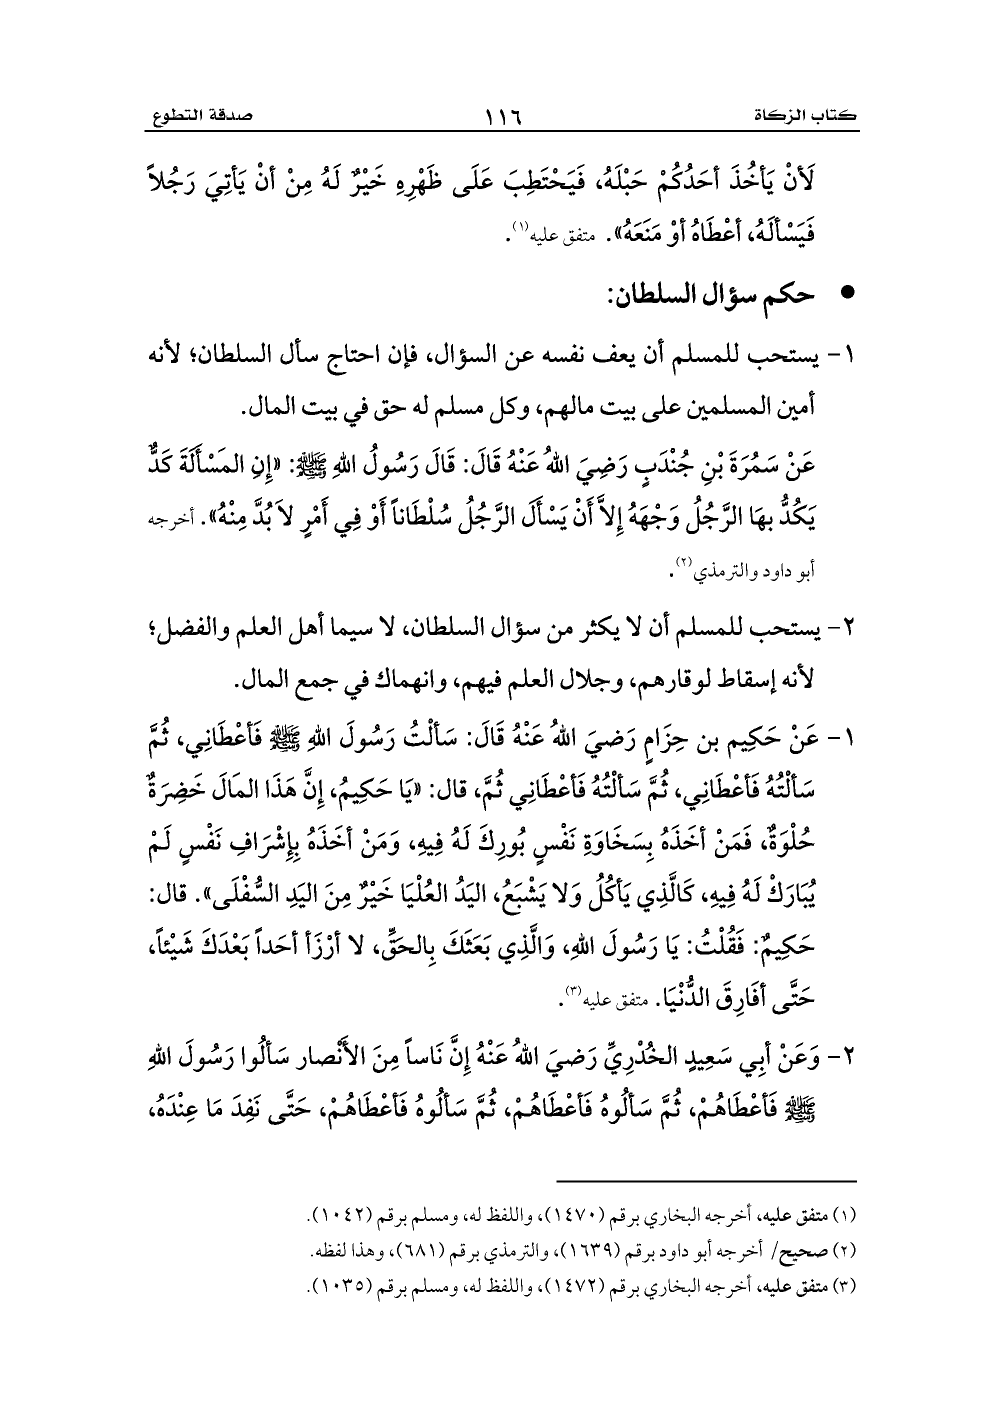 كتاب الزكاة ١١٦ صدقة التطوع
لَأنْ يَأخُذَ أحَدُكُمْ حَبْلَهُ، فَيَحْتَطِبَ عَلَى ظَهْرِهِ خَيْرٌ لَهُ مِنْ أنْ يَأتِيَ رَجُلاً
فَيَسْألَهُ، أعْطَاهُ أوْ مَنَعَهُ». متفق عليه(١).
● حكم سؤال السلطان:
١- يستحب للمسلم أن يعف نفسه عن السؤال، فإن احتاج سأل السلطان؛ لأنه
أمين المسلمين على بيت مالهم، وكل مسلم له حق في بيت المال.
عَنْ سَمُرَةَ بْنِ جُنْدَبٍ رَضِيَ اللهُ عَنْهُ قَالَ: قَالَ رَسُولُ اللهِ ﷺ: «إنِ المَسْألَةَ كَدٌّ
يَكُدُّ بهَا الرَّجُلُ وَجْهَهُ إلاَّ أَنْ يَسْأَلَ الرَّجُلُ سُلْطَاناً أَوْ فِي أَمْرٍ لاَ بُدَّ مِنْهُ». أخرجه
أبو داود والترمذي(٢).
٢- يستحب للمسلم أن لا يكثر من سؤال السلطان، لا سيما أهل العلم والفضل؛
لأنه إسقاط لوقارهم، وجلال العلم فيهم، وانهماك في جمع المال.
١- عَنْ حَكِيم بن حِزَامٍ رَضيَ اللهُ عَنْهُ قَالَ: سَألْتُ رَسُولَ اللهِ ﷺ فَأعْطَانِي، ثُمَّ
سَألْتُهُ فَأعْطَانِي، ثُمَّ سَألْتُهُ فَأعْطَانِي ثُمَّ، قال: «يَا حَكِيمُ، إنَّ هَذَا المَالَ خَضِرَةٌ
حُلْوَةٌ، فَمَنْ أخَذَهُ بِسَخَاوَةِ نَفْسٍ بُورِكَ لَهُ فِيهِ، وَمَنْ أخَذَهُ بِإشْرَافِ نَفْسٍ لَمْ
يُبَارَكْ لَهُ فِيهِ، كَالَّذِي يَأكُلُ وَلا يَشْبَعُ، اليَدُ العُلْيَا خَيْرٌ مِنَ اليَدِ السُّفْلَى». قال:
حَكِيمٌ: فَقُلْتُ: يَا رَسُولَ اللهِ، وَالَّذِي بَعَثَكَ بِالحَقِّ، لا أرْزَأ أحَداً بَعْدَكَ شَيْئاً،
حَتَّى أفَارِقَ الدُّنْيَا. متفق عليه(٣).
٢- وَعَنْ أبِي سَعِيدٍ الخُدْرِيِّ رَضيَ اللهُ عَنْهُ إنَّ نَاساً مِنَ الأَنْصار سَألُوا رَسُولَ اللهِ
ﷺ فَأعْطَاهُمْ، ثُمَّ سَألُوهُ فَأعْطَاهُمْ، ثُمَّ سَألُوهُ فَأعْطَاهُمْ، حَتَّى نَفِدَ مَا عِنْدَهُ،
(١) متفق عليه، أخرجه البخاري برقم (١٤٧٠)، واللفظ له، ومسلم برقم (١٠٤٢).
(٢) صحيح/ أخرجه أبو داود برقم (١٦٣٩)، والترمذي برقم (٦٨١)، وهذا لفظه.
(٣) متفق عليه، أخرجه البخاري برقم (١٤٧٢)، واللفظ له، ومسلم برقم (١٠٣٥).